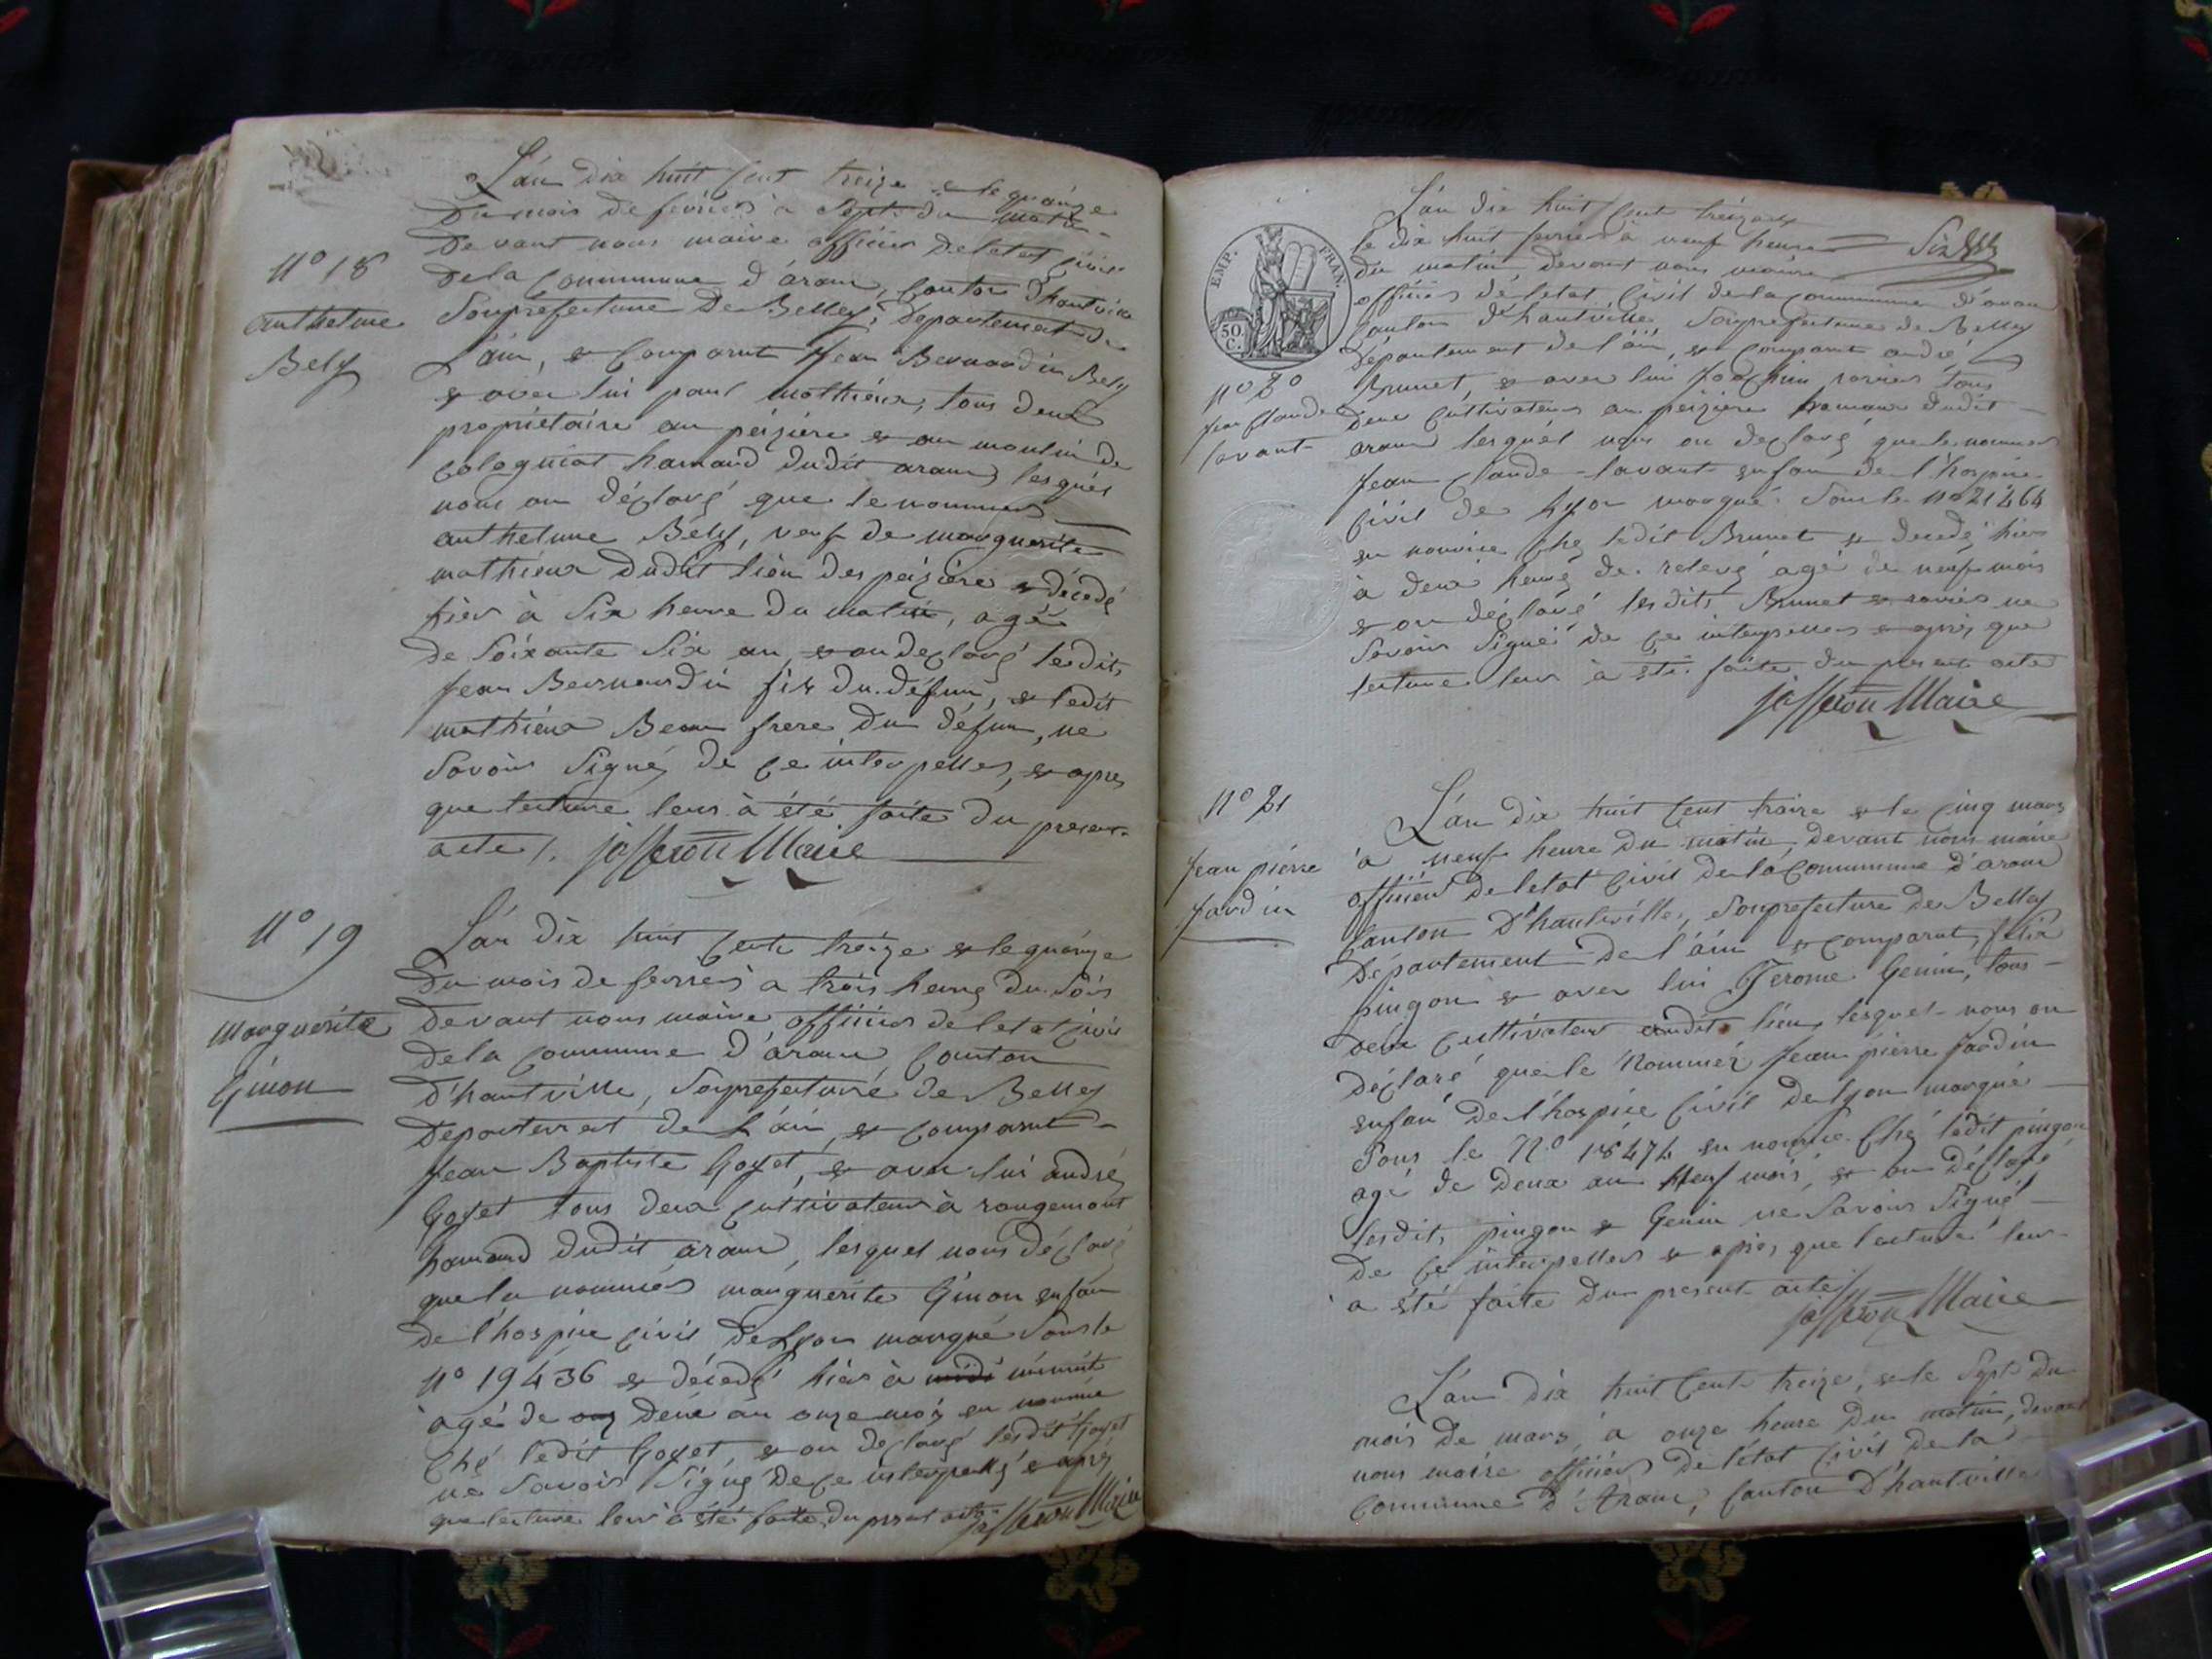 L'an dix huit cent treize & le quainze
du mois de fevrier à sept du matin
devant nous maire officier de letat civil
N° 18
de la commune d'aran, canton d'hautville
anthelme
Bely
Souprefecture de Belley, departement de
L'ain, & comparut Jean Bernardin Bely
& avec lui paul mathieux, tous deux
propriétaire au peizière & au moulin de
calogniat hamaud dudit aran, lesquel
nous on déclaré que le nommer
anthelme Bely, veuf de marguerite
mathieux dudit lieu des peizière & décedé
hier à Six heure du matin, agé
de Soixante Six an, & on declaré lesdits
Jean Bernardin fils du défun, & ledit
mathieux Beau frere du défun, ne
Savoir Signé, de ce interpelles, & apres
que lecture leur à été faite du present
acte /. Jasseron Maire
N° 19
L'an dix huit cent treize & le quainze
du mois de fevrier à trois heure du Soir
Marguerite
Ginon
devant nous maire officier de letat civil
de la commune d'aran canton
d'hautville, Souprefecture de Belley
departement de L'ain, & comparut
Jean Baptiste Goyet, & avec lui andré
Goyet tous deux cultivateur à rougemont
hamaud dudit aran, lesquel nous déclaré
que la nommés marguerite Ginon enfan
de l'hospice civil de Lyon marqué Sous le
N° 19436 & décedé hier à midi minuit
agé de deux an onze mois en nourrice
ché ledit Goyet & on declaré lesdit Goyet
ne Savoir Signé de ce interpellé & aprés
que lecture leur à été faite du present acte Jasseron Maire
EMP. FRAN.
50 C.
L'an dix huit cent treize
le dix huit fevrier à neuf heure
du matin, devant nous maire
officier de létat civil de la commune d'aran
canton d'hautville Souprefecture de Belley
département de l'ain, & comparut andré
N° 20
Jean Claude
lavant
Brunet, & avec lui Joachim
deux cultivateur au peizière hamaux dudit
aran lesquel nous on declaré que le nommer
Jean Claude lavant enfan de l'hospice
civil de Lyon marqué Sous le N° 21464
en nourrice ché ledit Brunet & decedé hier
à deux heure de relevé agé de neuf mois
& on déclaré lesdits Brunet & ne
Savoir Signé de ce interpelles & aprés que
lecture leur à été faite du present acte
Jasseron Maire
N° 21
L'an dix huit cent traize & le cinq mars
Jean piérre
Jardin
à neuf heure du matin, devant nous maire
officier de letat civil de la commune d'aran
canton D'hautville, Souprefecture de Belley
département de l'ain & comparut, félix
pingon & avec lui Jerome Genin, tous
deux cultivateur audit lieu, lesquel nous on
déclaré que le Nommér Jean pierre Jardin
enfan de l'hospice civil de Lyon marqué
Sous le N° 18474 en nourrice ché ledit pingon
agé de deux an Neuf mois, & on déclaré
lesdits pingon & Genin ne Savoir Signé
de ce interpelles & aprés que lecture leur
à été faite du present acte
Jasseron Maire
L'an dix huit cent treize, & le Sept du
mois de mars à onze heure du matin, devant
nous maire officier de létat civil de la
commune d'Aran, canton d'hautville